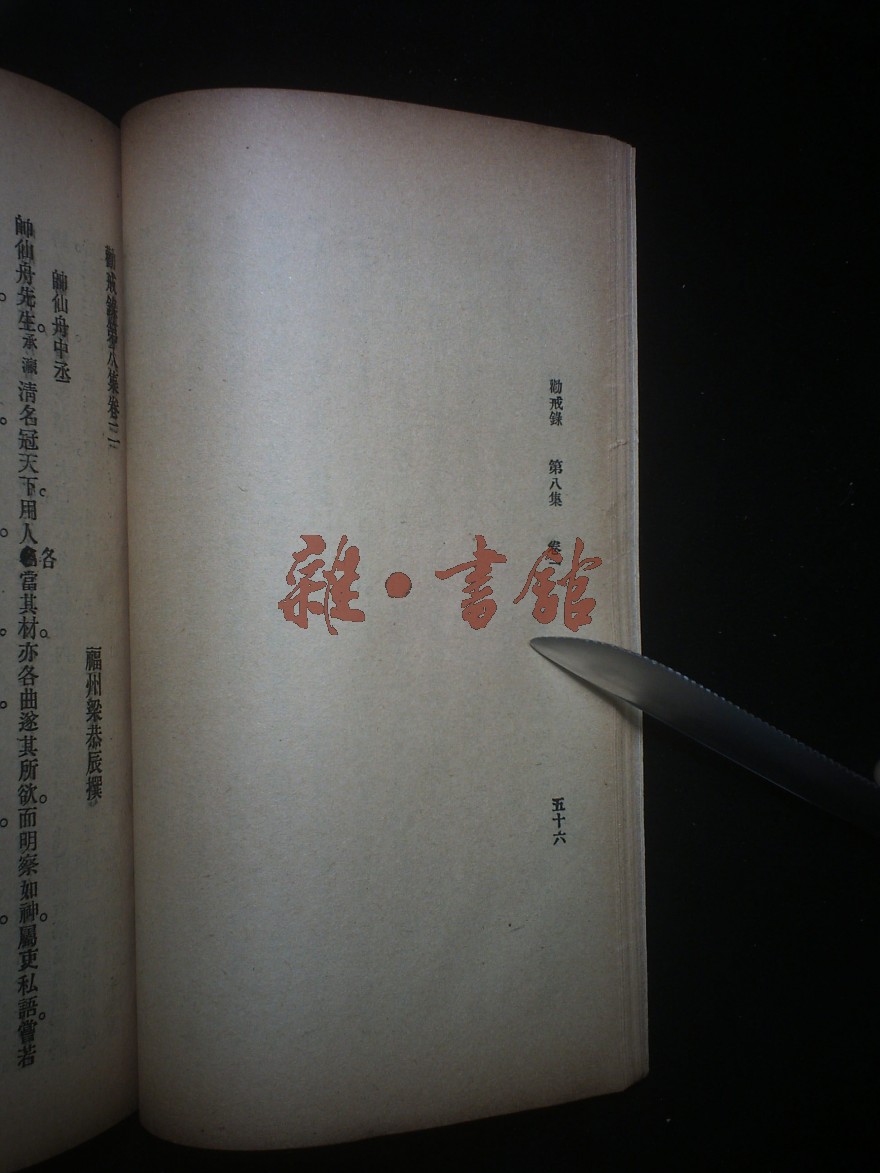 勸戒錄 第八集 卷一 五十六
雜·書館
勸戒錄第八集卷二
福州梁恭辰撰
帥仙舟中丞
帥仙舟先生承瀛清名冠天下。用人各當其材。亦各曲遂其所欲。而明察如神。屬吏私語。嘗若